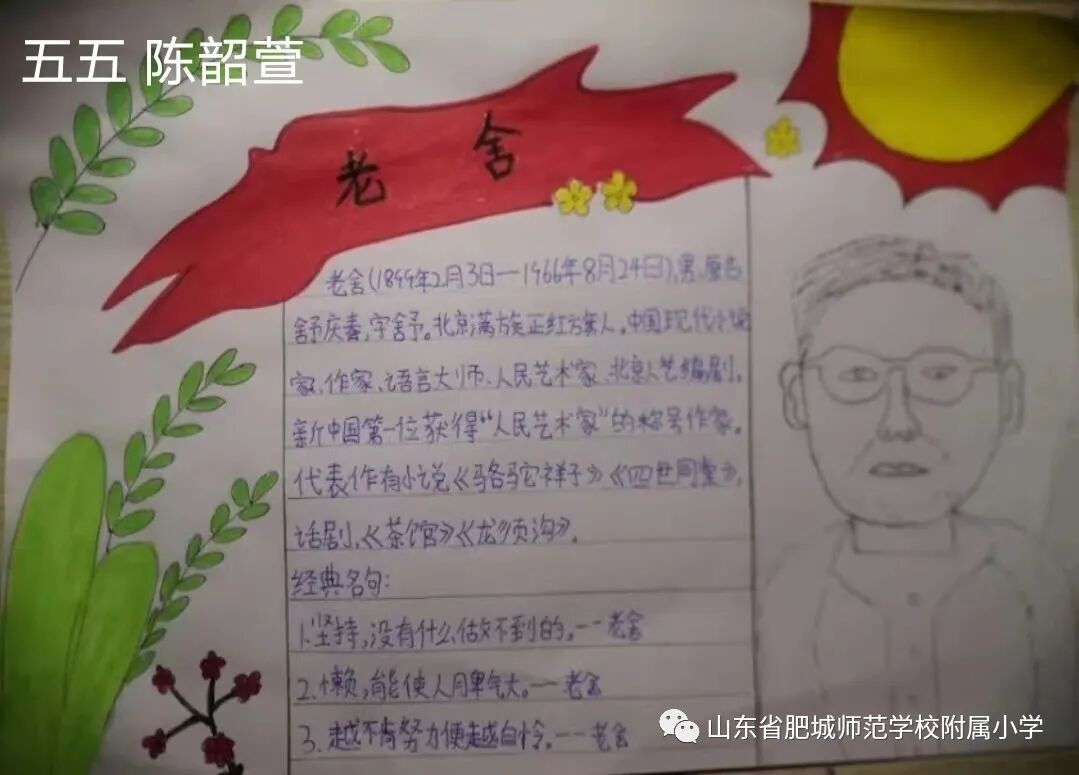 五五 陈韶萱
老舍
老舍(1899年2月3日—1966年8月24日),男,原名
舒庆春,字舍予。北京满族正红旗人。中国现代小说
家、作家、语言大师、人民艺术家、北京人艺编剧。
新中国第一位获得“人民艺术家”的称号作家。
代表作有小说《骆驼祥子》《四世同堂》,
话剧、《茶馆》《龙须沟》。
经典名句:
1.坚持,没有什么做不到的。--老舍
2.懒,能使人脾气大。--老舍
3.越不肯努力便越自怜。---老舍
山东省肥城师范学校附属小学